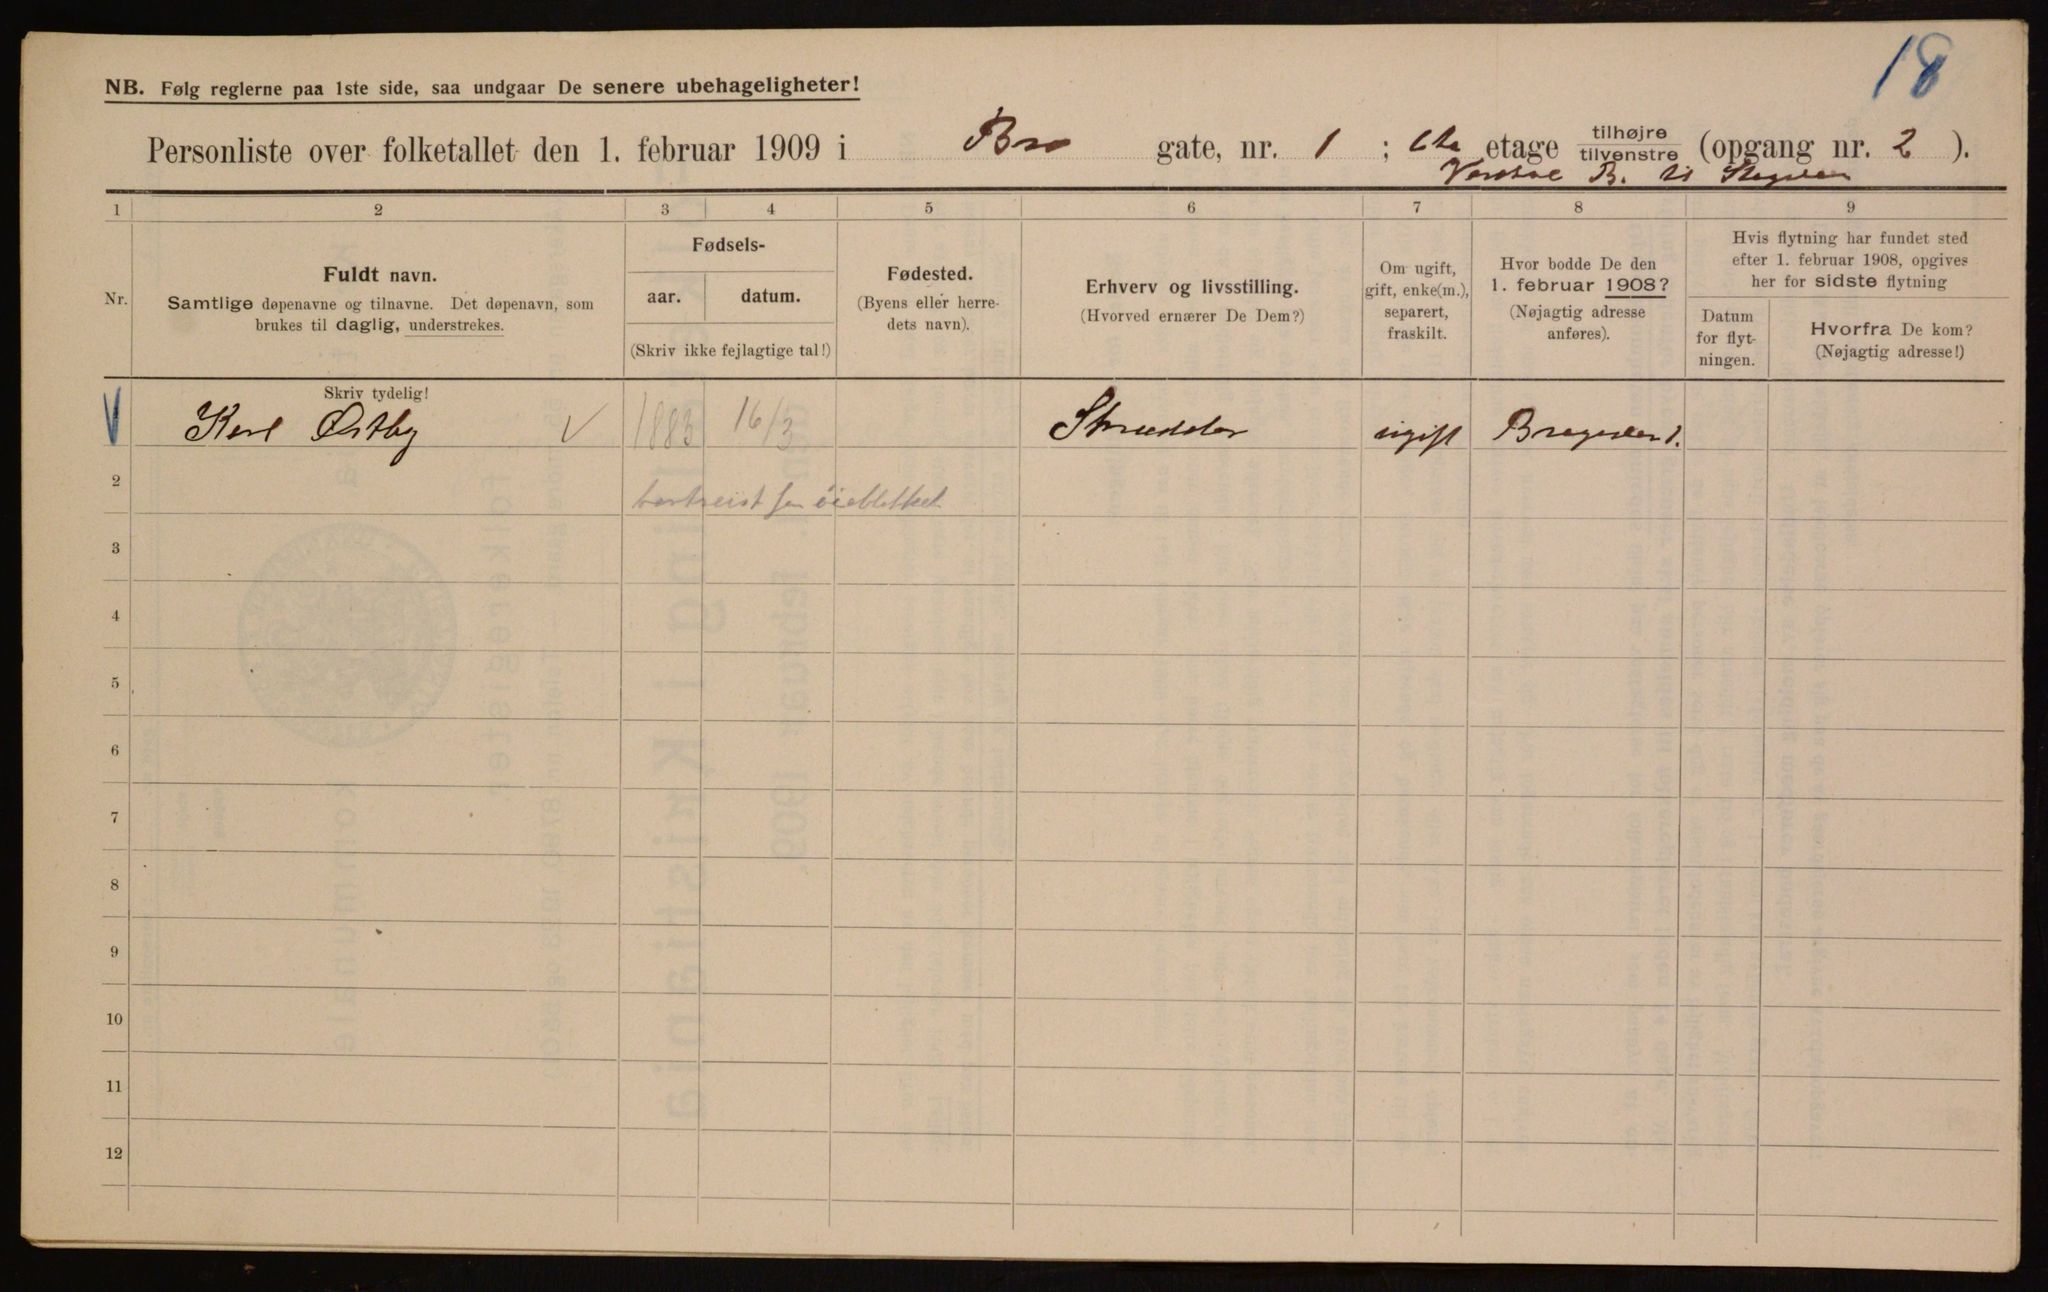 18
NB. Følg reglerne paa 1ste side, saa undgaar De senere ubehageligheter!
Personliste over folketallet den 1. februar 1909 i Bro gate, nr. 1 ; etage tilhøjre tilvenstre (opgang nr. 2 ).
B. til
1 2 3 4 5 6 7 8 9
Nr.
Fuldt navn.
Samtlige døpenavne og tilnavne. Det døpenavn, som
brukes til daglig, understrekes.
Fødsels-
aar. datum.
(Skriv ikke fejlagtige tal!)
Fødested.
(Byens eller herre-
dets navn).
Erhverv og livsstilling.
(Hvorved ernærer De Dem?)
Om ugift,
gift, enke(m.),
separert,
fraskilt.
Hvor bodde De den
1. februar 1908?
(Nøjagtig adresse
anføres).
Hvis flytning har fundet sted
efter 1. februar 1908, opgives
her for sidste flytning
Datum
for flyt-
ningen.
Hvorfra De kom?
(Nøjagtig adresse!)
Skriv tydelig!
Karl Østby 1883 16/3 Skrædder ugift Brogaten 1.
2 bortreist for øieblikket
3
4
5
6
7
8
9
10
11
12